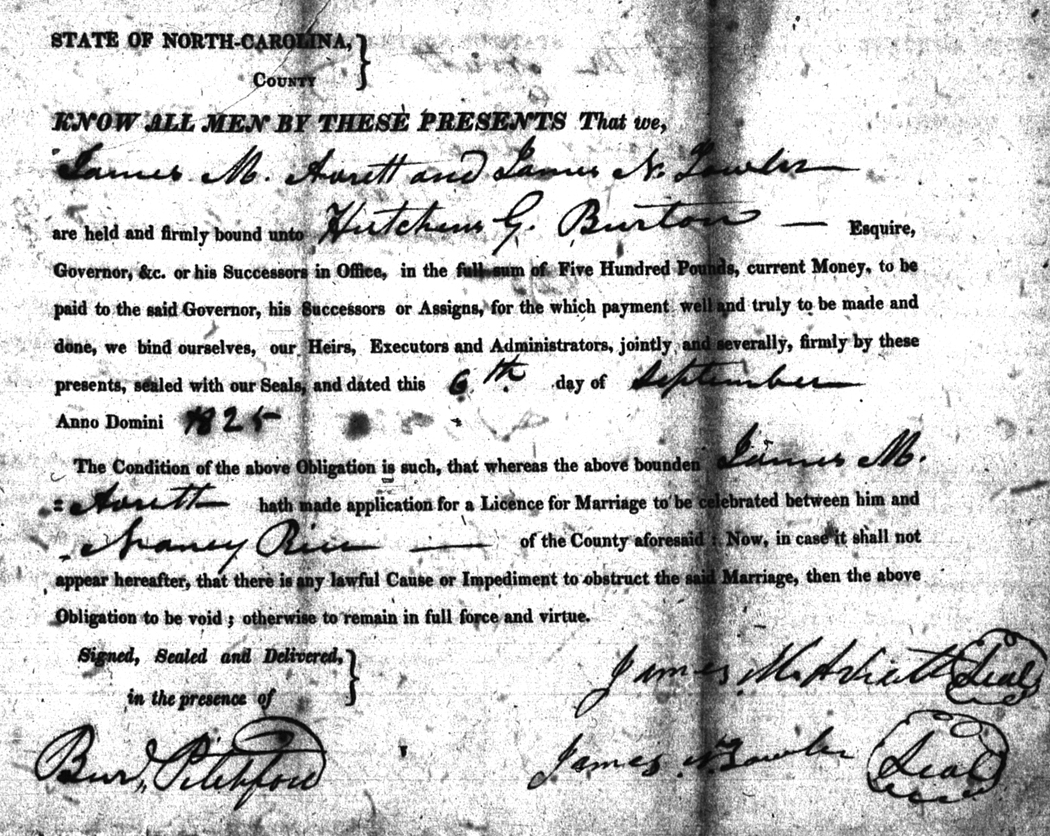 STATE OF NORTH-CAROLINA, }
COUNTY
KNOW ALL MEN BY THESE PRESENTS That we,
James M. Avrett and James N. Fowler
are held and firmly bound unto Hutchins G. Burton — Esquire,
Governor, &c. or his Successors in Office, in the full sum of Five Hundred Pounds, current Money, to be
paid to the said Governor, his Successors or Assigns, for the which payment well and truly to be made and
done, we bind ourselves, our Heirs, Executors and Administrators, jointly and severally, firmly by these
presents, sealed with our Seals, and dated this 6th day of September
Anno Domini 1825
The Condition of the above Obligation is such, that whereas the above bounden James M.
Avrett hath made application for a Licence for Marriage to be celebrated between him and
Nancy Rice — of the County aforesaid : Now, in case it shall not
appear hereafter, that there is any lawful Cause or Impediment to obstruct the said Marriage, then the above
Obligation to be void ; otherwise to remain in full force and virtue.
Signed, Sealed and Delivered, }
in the presence of
James M. Avrett Seal
Burd. Pitchford
James N Fowler Seal